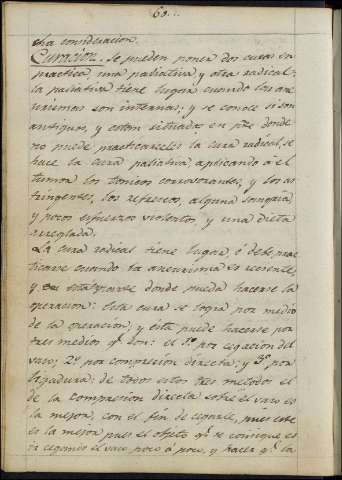 60..
cha consideracion.
Curacion. Se pueden poner dos curas en
practica, una paliativa, y otra radical:
la paliativa tiene lugar cuando los ane
urismas son internas, y se conoce si son
antiguos, y estan situadas en pte donde
no puede practicarseles la cura radical, se
hace la cura paliativa, aplicando á el
tumor los tonicos corroborantes, y los as
tringentes, los refrescos, alguna sangria,
y pocos esfuerzos violentos y una dieta
arreglada.
La cura radical tiene lugar, ó debe prac
ticarse cuando la aneurisma es reciente,
y está en parte donde pueda hacerse la
operacion: Esta cura se logra por medio
de la operacion, y ésta puede hacerse por
tres medios qe. son: el 1o. por cegacion del
vaso; 2o por compresion directa; y 3o. por
ligadura: de todos estos tres metodos el
de la compresion directa sobre el vaso es
la mejor, con el fin de cegarle, pues este
es la mejor pues el objeto qe. se consigue es
ir cegando el vaso poco á poco, y hacer qe. la